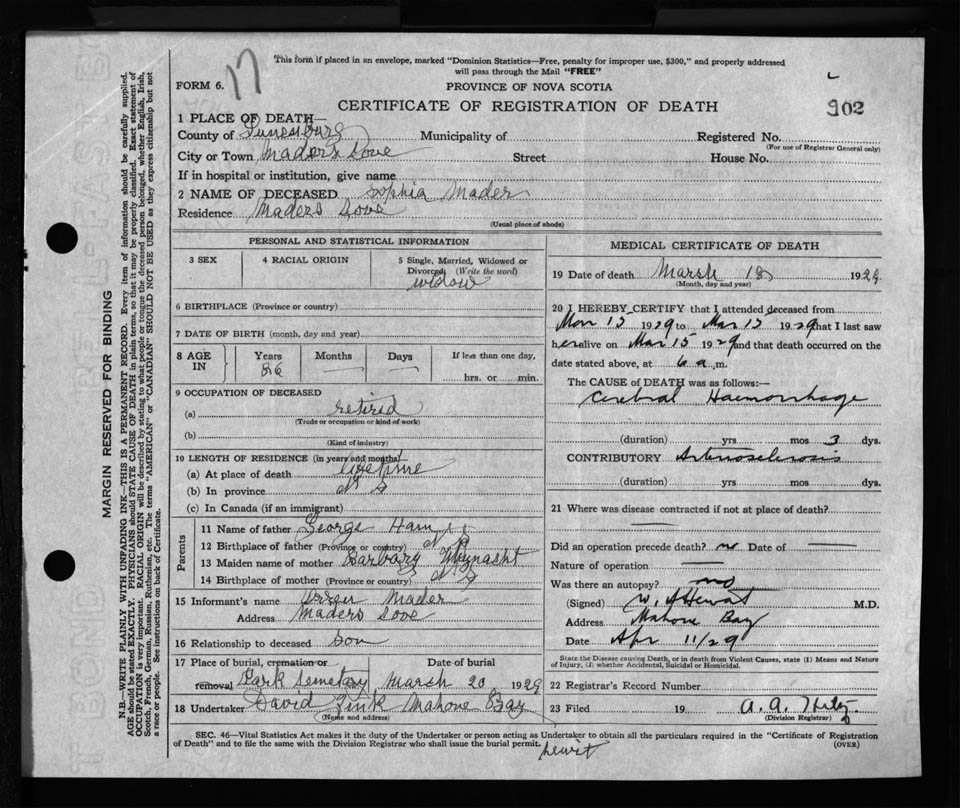 This form if placed in an envelope, marked "Dominion Statistics—Free, penalty for improper use, $300," and properly addressed
will pass through the Mail "FREE"
FORM 6. 17
PROVINCE OF NOVA SCOTIA
CERTIFICATE OF REGISTRATION OF DEATH
902
1 PLACE OF DEATH—
County of Lunenburg Municipality of Registered No.
(For use of Registrar General only)
City or Town Mader's Cove Street House No.
If in hospital or institution, give name
2 NAME OF DECEASED Sophia Mader
Residence Maders Cove
(Usual place of abode)
PERSONAL AND STATISTICAL INFORMATION
3 SEX 4 RACIAL ORIGIN 5 Single, Married, Widowed or
Divorced (Write the word)
widow
6 BIRTHPLACE (Province or country)
7 DATE OF BIRTH (month, day and year)
8 AGE IN Years Months Days If less than one day,
86 — — hrs. or min.
9 OCCUPATION OF DECEASED
(a) retired
(Trade or occupation or kind of work)
(b)
(Kind of industry)
10 LENGTH OF RESIDENCE (in years and months)
(a) At place of death life time
(b) In province N S
(c) In Canada (if an immigrant)
Parents
11 Name of father George Ham
12 Birthplace of father (Province or country) N S
13 Maiden name of mother Barbary
14 Birthplace of mother (Province or country) N S
15 Informant's name Mader
Address Maders Cove
16 Relationship to deceased Son
17 Place of burial, cremation or Date of burial
removal Park Semetary March 20 1929
18 Undertaker David Zink Mahone Bay
(Name and address)
MEDICAL CERTIFICATE OF DEATH
19 Date of death Marsh 18 1929
(Month, day and year)
20 I HEREBY CERTIFY that I attended deceased from
1929 to Mar 15 1929 that I last saw
her alive on Mar 15 1929 and that death occurred on the
date stated above, at 6 a. m.
The CAUSE of DEATH was as follows:—
Cerebral Haemorrhage
(duration) yrs mos 3 dys.
CONTRIBUTORY Arteriosclerosis
(duration) yrs mos dys.
21 Where was disease contracted if not at place of death?
—
Did an operation precede death? no Date of —
Nature of operation —
Was there an autopsy? no
(Signed) W. A Hewat M.D.
Address Mahone Bay
Date Apr 11/29
State the Disease causing Death, or in death from Violent Causes, state (1) Means and Nature
of Injury, (2) whether Accidental, Suicidal or Homicidal.
22 Registrar's Record Number
23 Filed 19 A. A.
(Division Registrar)
SEC. 46—Vital Statistics Act makes it the duty of the Undertaker or person acting as Undertaker to obtain all the particulars required in the "Certificate of Registration
of Death" and to file the same with the Division Registrar who shall issue the burial permit.
(OVER)
MARGIN RESERVED FOR BINDING
N.B.—WRITE PLAINLY WITH UNFADING INK—THIS IS A PERMANENT RECORD. Every item of information should be carefully supplied.
AGE should be stated EXACTLY. PHYSICIANS should STATE CAUSE OF DEATH in plain terms, so that it may be properly classified. Exact statement of
OCCUPATION is very important. RACIAL ORIGIN will be described by stating to what people or tongue the deceased person belonged, whether English, Irish,
Scotch, French, German, Russian, Ruthenian, etc. The terms "AMERICAN" or "CANADIAN" SHOULD NOT BE USED as they express citizenship but not
a race or people. See instructions on back of Certificate.